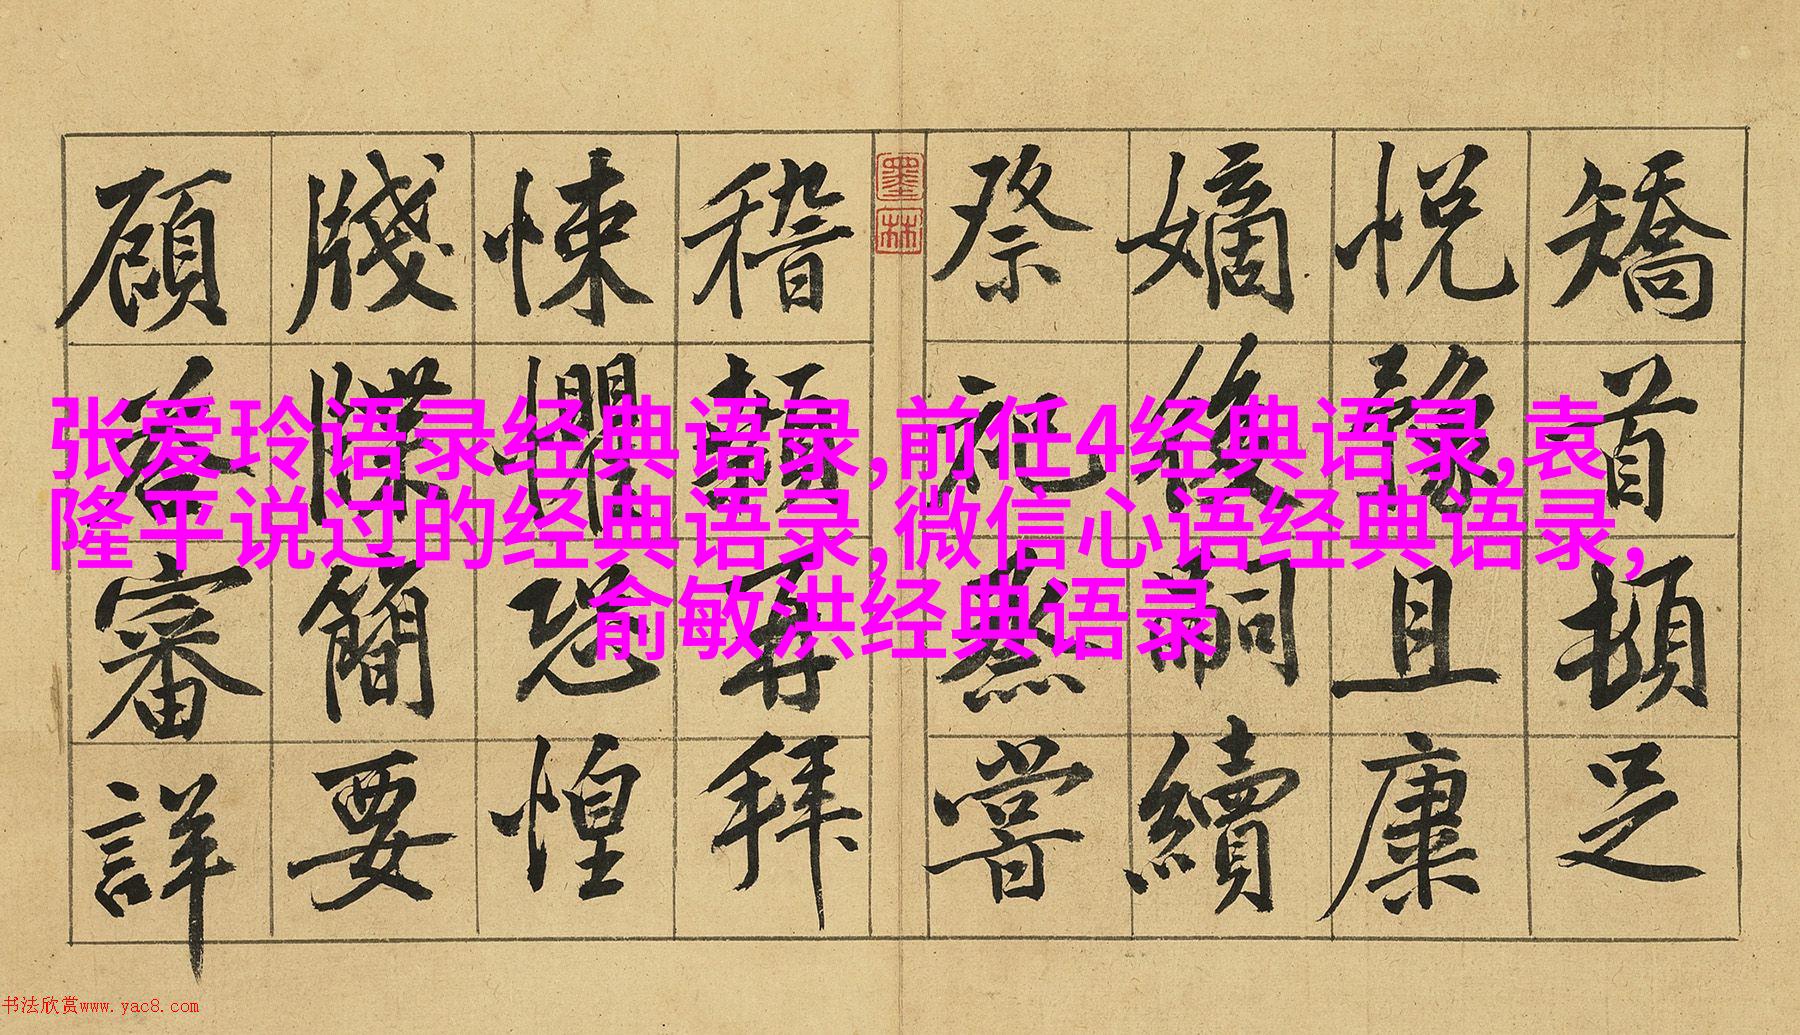 矯首頓足
悅豫且康
嫡後嗣續
祭祀蒸嘗
墨林
稽顙再拜
悚懼恐惶
牋牒簡要
顧答審詳
张爱玲语录经典语录,前任4经典语录,袁
隆平说过的经典语录,微信心语经典语录,
俞敏洪经典语录
书法欣赏www.yac8.com